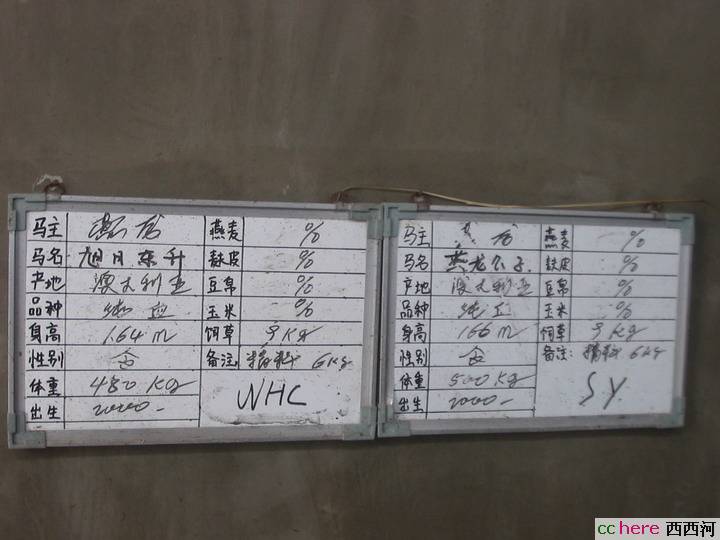 马主 燕麦 %
马名 旭日东升 麸皮 %
产地 澳大利亚 豆帛 %
品种 纯血 玉米 %
身高 1.64m 饲草 9kg
性别 备注: 精料 6kg
体重 480kg
出生 2000- WHC
马主 燕麦 %
马名 龙公子 麸皮 %
产地 澳大利亚 豆帛 %
品种 纯血 玉米 %
身高 166m 饲草 9kg
性别 备注: 精料 6kg
体重 500kg
出生 2000- SY.
cchere 西西河